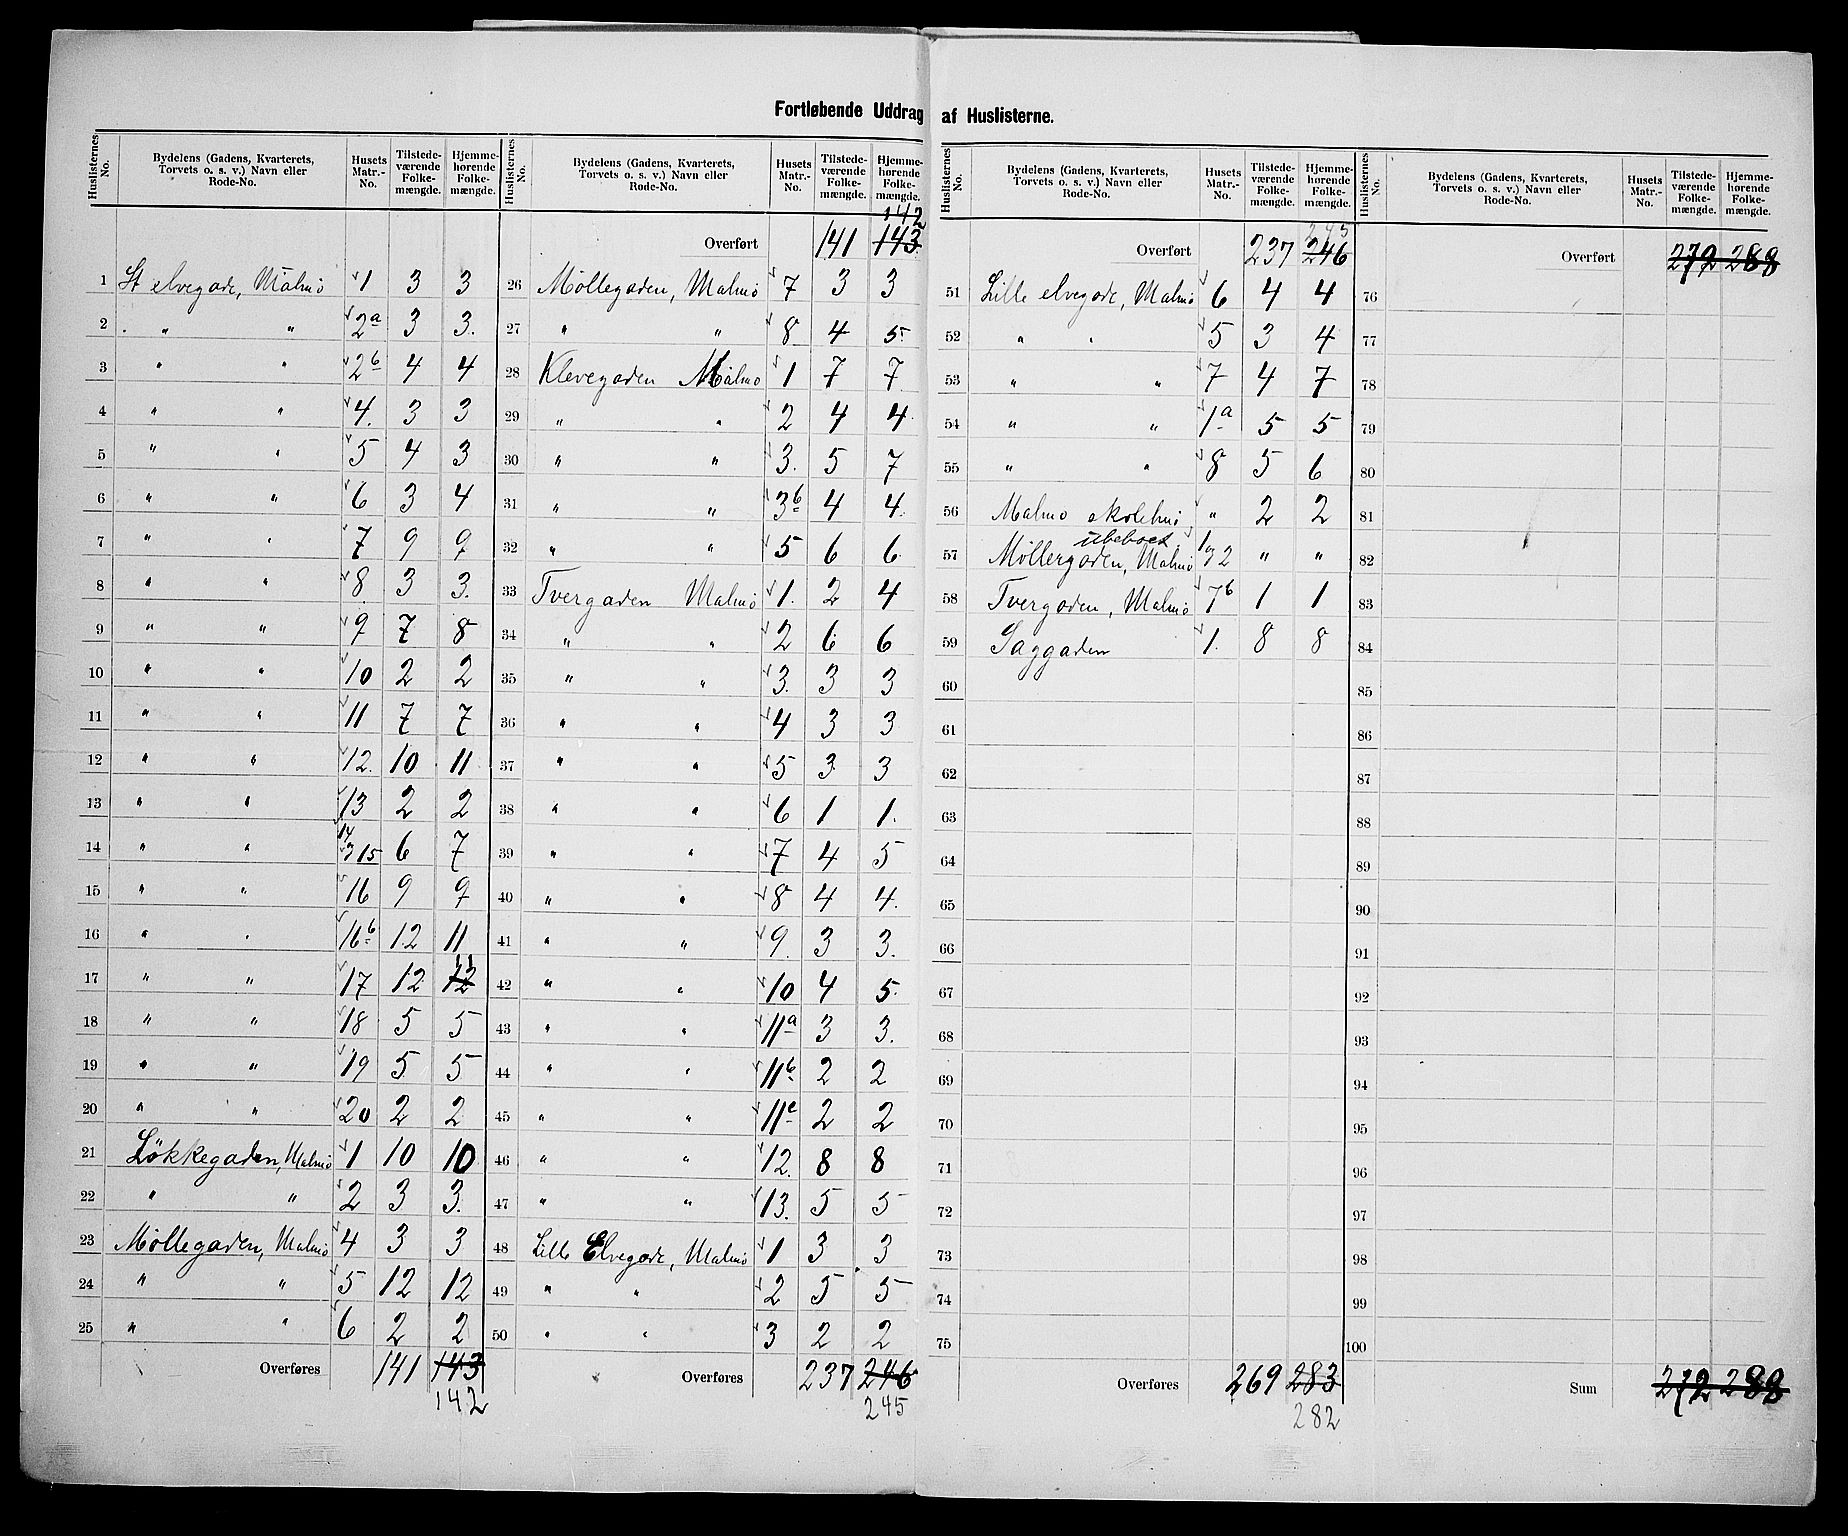 Fortløbende Uddrag af Huslisterne.
Huslisternes No. | Bydelens (Gadens, Kvarterets, Torvets o. s. v.) Navn eller Rode-No. | Husets Matr.-No. | Tilstede-værende Folke-mængde. | Hjemme-hørende Folke-mængde.
1 St elvegade, Malmö 1 3 3
2 " " 2a 3 3.
3 " " 2b 4 4
4 " " 4. 3 3
5 " " 5 4 3
6 " " 6 3 4
7 " " 7 9 9
8 " " 8. 3 3.
9 " " 9 7 8
10 " " 10 2 2
11 " " 11 7 7
12 " " 12. 10 11
13 " " 13 2 2
14 " " 14 15 6 7
15 " " 16 9 9
16 " " 16b 12 11
17 " " 17 12 12 11
18 " " 18 5 5
19 " " 19 5 5
20 " " 20 2 2
21 Løkkegaden, Malmö 1 10 10
22 " " 2 3 3.
23 Møllegaden, Malmö 4 3 3
24 " " 5 12 12
25 " " 6 2 2
Overføres 141 143
142
Huslisternes No. | Bydelens (Gadens, Kvarterets, Torvets o. s. v.) Navn eller Rode-No. | Husets Matr.-No. | Tilstede-værende Folke-mængde. | Hjemme-hørende Folke-mængde.
142
Overført 141 143
26 Møllegaden, Malmö 7 3 3
27 " " 8 4 5
28 Klevegaden Malmö 1 7 7
29 " " 2 4 4
30 " " 3. 5 7
31 " " 3b 4 4
32 " " 5 6 6
33 Tvergaden Malmö 1. 2 4
34 " " 2 6 6
35 " " 3. 3 3
36 " " 4 3 3
37 " " 5 3 3
38 " " 6 1 1.
39 " " 7 4 5
40 " " 8 4 4.
41 " " 9. 3 3.
42 " " 10 4 5.
43 " " 11a 3 3.
44 " " 11b 2 2
45 " " 11c 2 2
46 " " 12. 8 8
47 " " 13. 5 5
48 Lille Elvegade, Malmö 1 3 3
49 " " 2 5 5
50 " " 3 2 2
Overføres 237 246
245
Huslisternes No. | Bydelens (Gadens, Kvarterets, Torvets o. s. v.) Navn eller Rode-No. | Husets Matr.-No. | Tilstede-værende Folke-mængde. | Hjemme-hørende Folke-mængde.
245
Overført 237 246
51 Lille elvegade, Malmö 6 4 4
52 " " 5 3 4
53 " " 7 4 7
54 " " 1a 5 5
55 " " 8 5 6
56 Malmö skolehus " 2 2
ubeboet
57 Møllergaden, Malmö 1 og 2 " "
58 Tvergaden, Malmö 7b 1 1
59 Saggaden 1. 8 8
60
61
62
63
64
65
66
67
68
69
70
71
72
73
74
75
Overføres 269 283
282
Huslisternes No. | Bydelens (Gadens, Kvarterets, Torvets o. s. v.) Navn eller Rode-No. | Husets Matr.-No. | Tilstede-værende Folke-mængde. | Hjemme-hørende Folke-mængde.
Overført 272 288
76
77
78
79
80
81
82
83
84
85
86
87
88
89
90
91
92
93
94
95
96
97
98
99
100
Sum 272 288